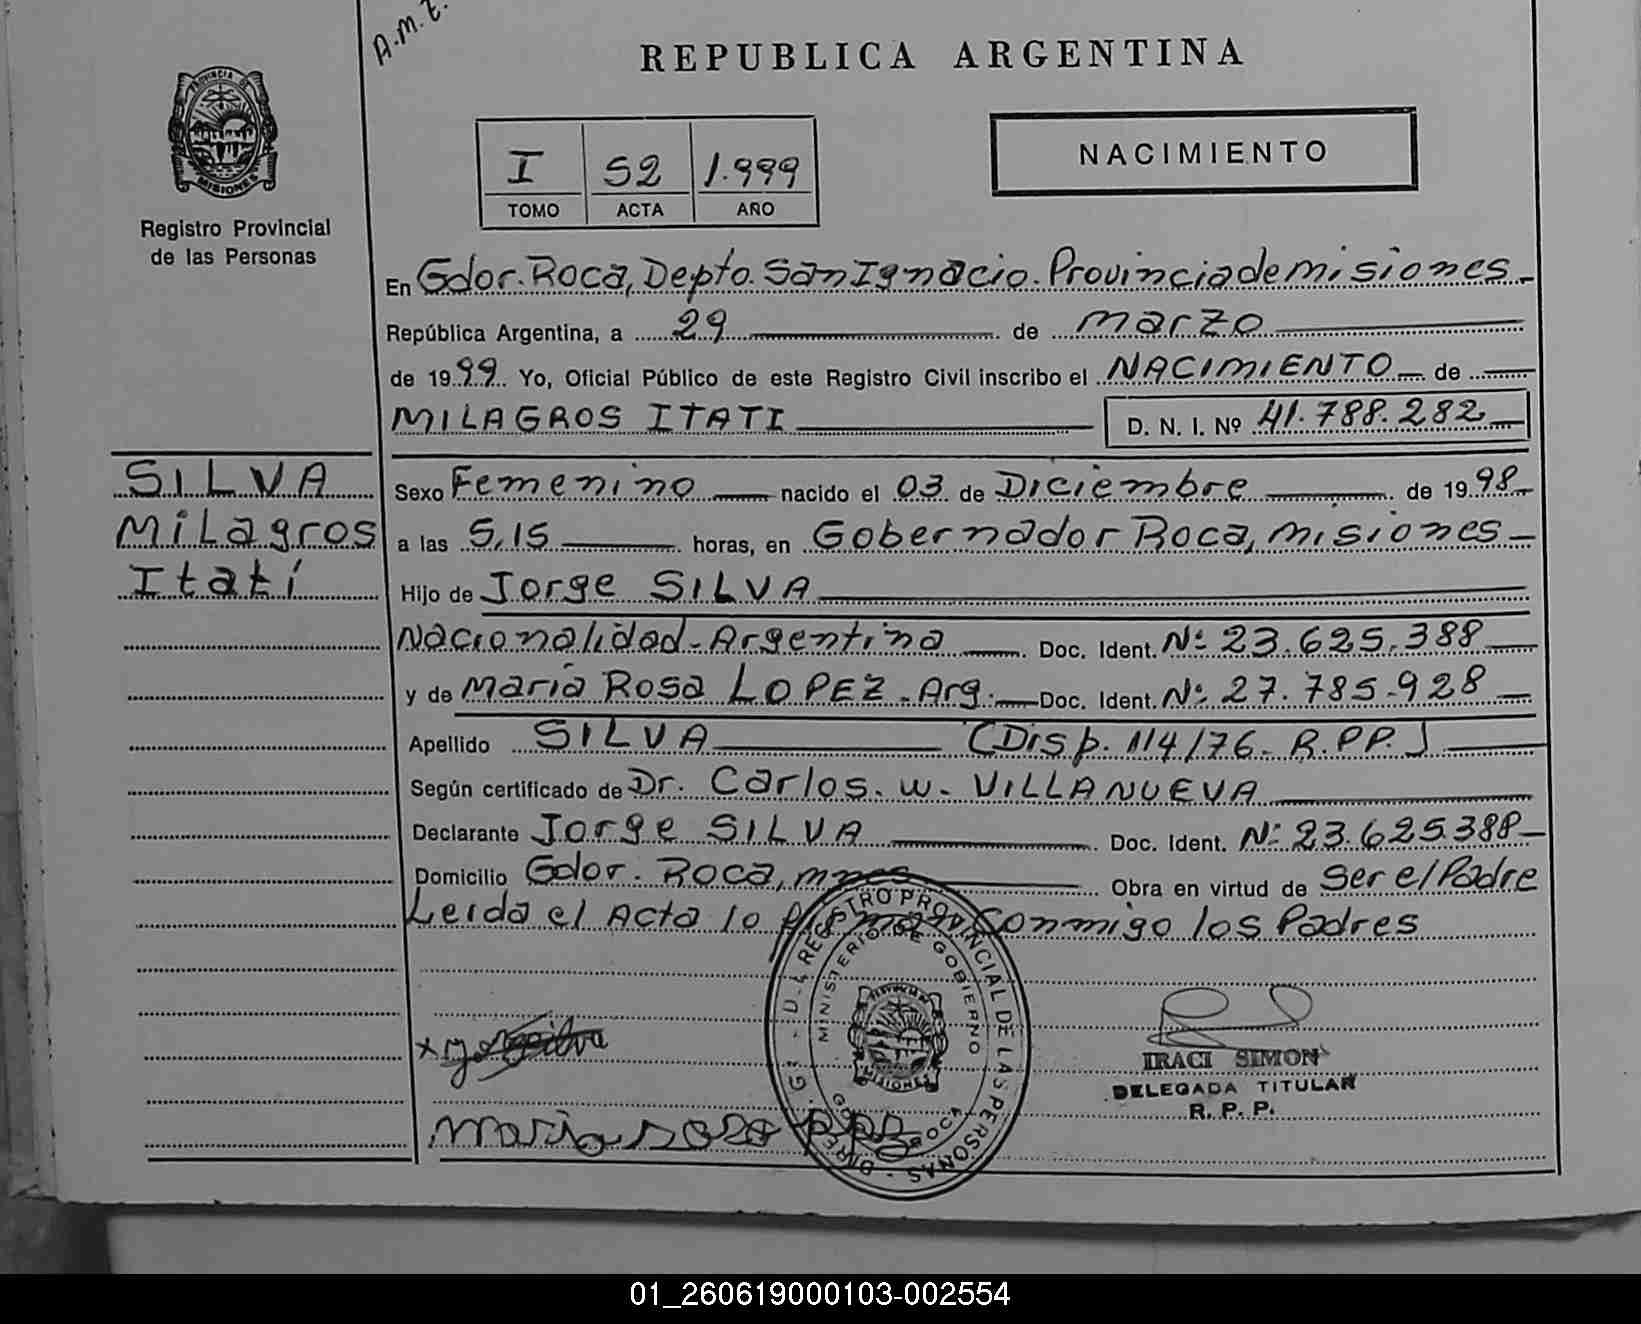 A.M.E.
REPUBLICA ARGENTINA
PROVINCIA DE
MISIONES
Registro Provincial
de las Personas
I 52 1.999
TOMO ACTA AÑO
NACIMIENTO
En Gdor. Roca, Depto. San Ignacio. Provincia de misiones
República Argentina, a 29 de marzo
de 1999 Yo, Oficial Público de este Registro Civil inscribo el NACIMIENTO de
MILAGROS ITATI D. N. I. Nº 41.788.282
SILVA
Milagros
Itatí
Sexo Femenino nacido el 03 de Diciembre de 1998
a las 5,15 horas, en Gobernador Roca, misiones
Hijo de Jorge SILVA
Nacionalidad-Argentina Doc. Ident. Nº 23.625.388
y de María Rosa LOPEZ-Arg. Doc. Ident. Nº 27.785.928
Apellido SILVA (Disp. 114/76- R.P.P.)
Según certificado de Dr. Carlos. W. VILLANUEVA
Declarante Jorge SILVA Doc. Ident. Nº 23.625388
Domicilio Gdor. Roca, mnes Obra en virtud de Ser el Padre
Leida el Acta lo firman conmigo los Padres
REGISTRO PROVINCIAL DE LAS PERSONAS
MINISTERIO DE GOBIERNO
MISIONES
ROCA
IRACI SIMON
DELEGADA TITULAR
R. P. P.
01_260619000103-002554